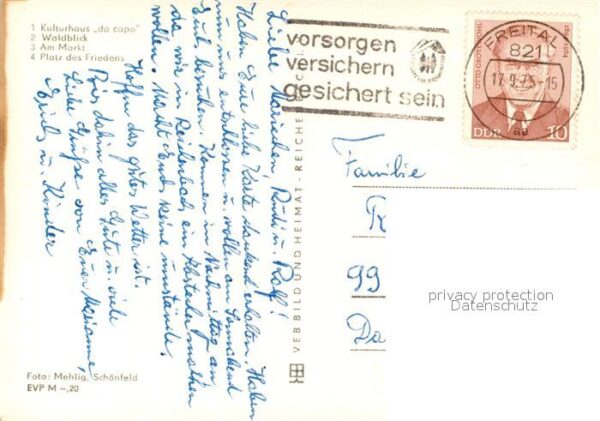 1 Kulturhaus „da capo"
2 Waldblick
3 Am Markt
4 Platz des Friedens
Liebe Mariechen, Rudi u. Rolf!
Haben Eure liebe Karte dankend erhalten. Haben
uns entschlossen u. wollen am Sonnabend
Euch besuchen. Kommen im Nachmittag an,
da wir in Reichenbach ein
wollen. Macht Euch keine Umstände.
Hoffen das gutes Wetter ist.
Bis dahin alles Gute u. viele
Liebe Grüße von Euer Marianne,
Erich u. Kinder
Foto: Mehlig, Schönfeld
EVP M –,20
VEB BILD UND HEIMAT · REICHENBACH
vorsorgen
versichern
gesichert sein
FREITAL 1
821
17.9.75-15
ad
OTTO GROTEWOHL
1894-1964
DDR 10
Familie
99
privacy protection
Datenschutz